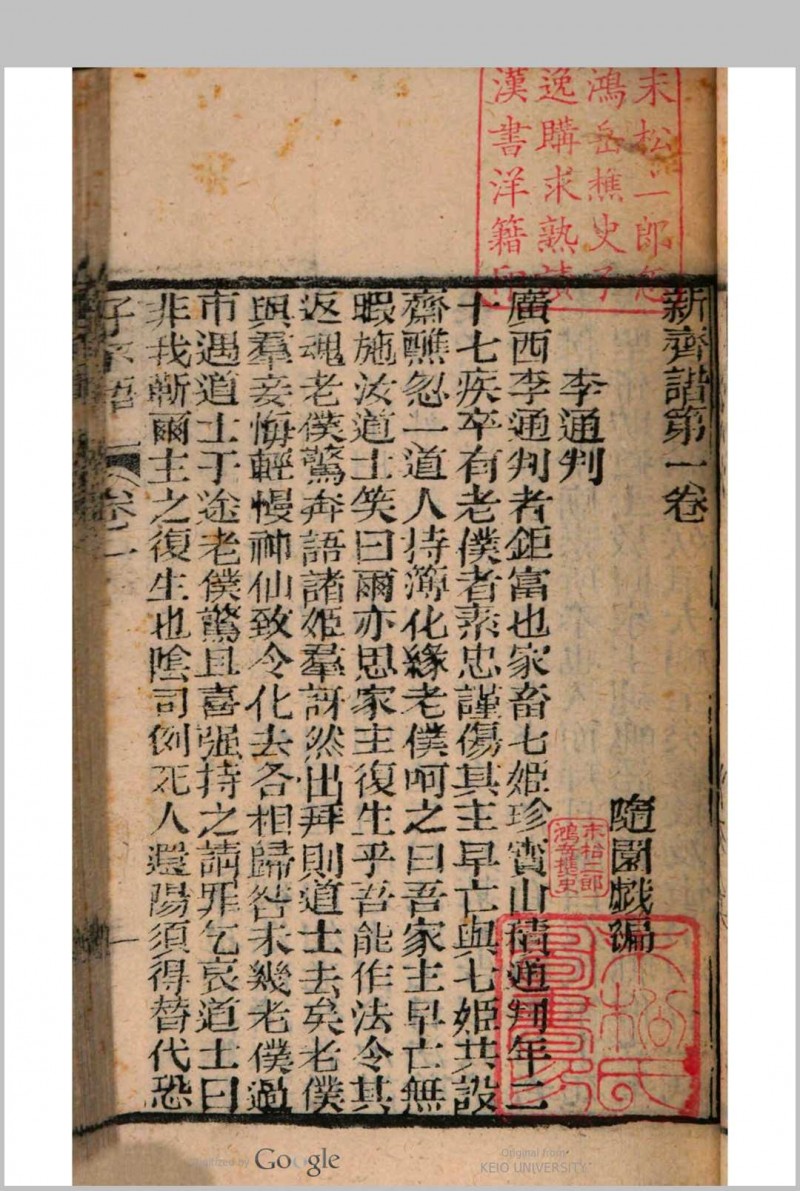 新齊諧第一卷
隨園戯編
李通判
廣西李通判者鉅富也家畜七姬珍寳山積通判年二
十七疾卒有老僕者素忠謹傷其主早亡與七姬共設
齋醮忽一道人持簿化緣老僕呵之曰吾家主早亡無
暇施汝道士笑曰爾亦思家主復生乎吾能作法令其
返魂老僕驚奔語諸姬羣訝然出拜則道士去矣老僕
與羣妾悔輕慢神仙致令化去各相歸咎未幾老僕過
市遇道士于途老僕驚且喜强持之請罪乞哀道士曰
非我靳爾主之復生也陰司例死人還陽須得替代恐
子不語
卷一
一
末松二郎
鴻岳樵史子
逸購求熟讀
漢書洋籍印
末松二郎
鴻岳樵史
末松氏
Digitized by Google
Original from
KEIO UNIVERSITY